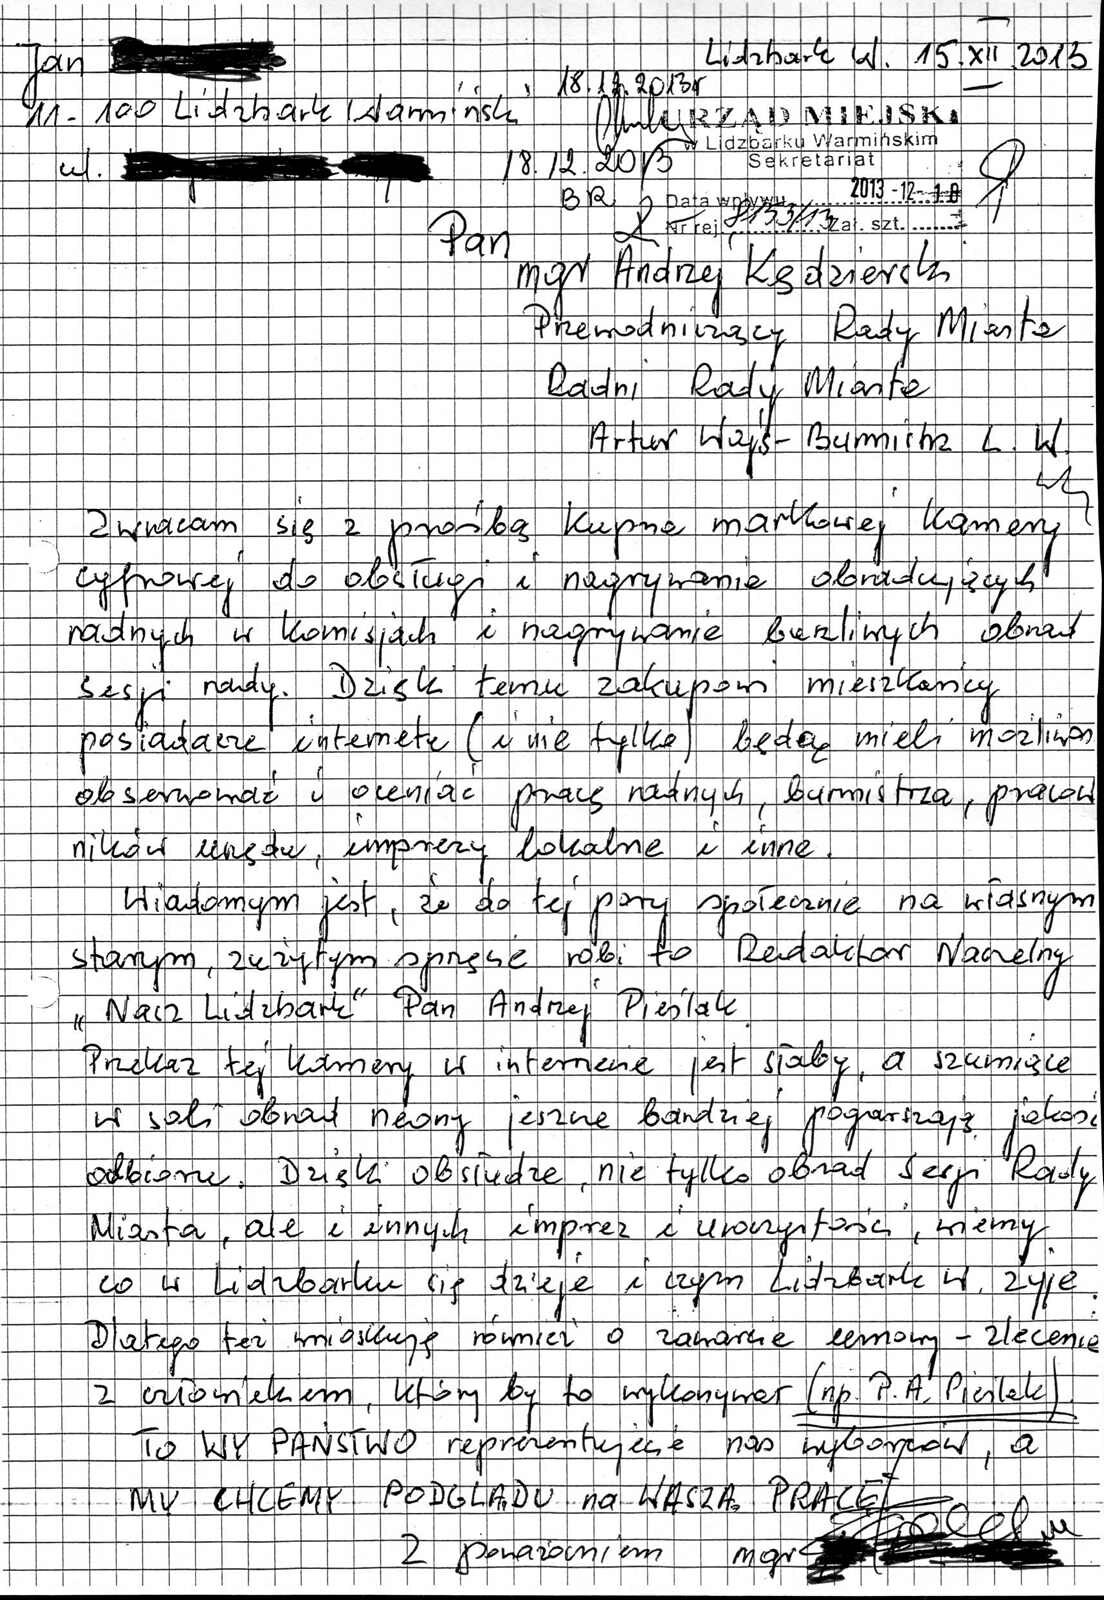 Jan
Lidzbark W. 15.XII.2013
18.12.2013r
11-100 Lidzbark Warmiński
URZĄD MIEJSKI
w Lidzbarku Warmińskim
Sekretariat
ul.
18.12.2013
BR
Data wpływu 2013-12-18
Nr rej. 8153/13 Zał. szt.
Pan
mgr Andrzej Kędzierski
Przewodniczący Rady Miasta
Radni Rady Miasta
Artur Wajs - Burmistrz L. W.
Zwracam się z prośbą kupna markowej kamery
cyfrowej do obsługi i nagrywanie obradujących
radnych w komisjach i nagrywanie burzliwych obrad
sesji rady. Dzięki temu zakupowi mieszkańcy
posiadacze internetu (i nie tylko) będą mieli możliwość
obserwować i oceniać pracę radnych, burmistrza, pracow
ników urzędu, imprezy lokalne i inne.
Wiadomym jest, że do tej pory społecznie na własnym
starym, zużytym sprzęcie robi to Redaktor Naczelny
„Nasz Lidzbark" Pan Andrzej Pieślak.
Przekaz tej kamery w internecie jest słaby, a szumiące
w sali obrad neony jeszcze bardziej pogarszają jakość
odbioru. Dzięki obsłudze, nie tylko obrad Sesji Rady
Miasta, ale i innych imprez i uroczystości, wiemy
co w Lidzbarku się dzieje i czym Lidzbark W. żyje.
Dlatego też wnioskuję również o zawarcie umowy - zlecenie
z człowiekiem, który by to wykonywał (np. P. A. Pieślak).
TO WY PAŃSTWO reprezentujecie nas wyborców, a
MY CHCEMY PODGLĄDU na WASZĄ PRACĘ!
Z poważaniem mgr